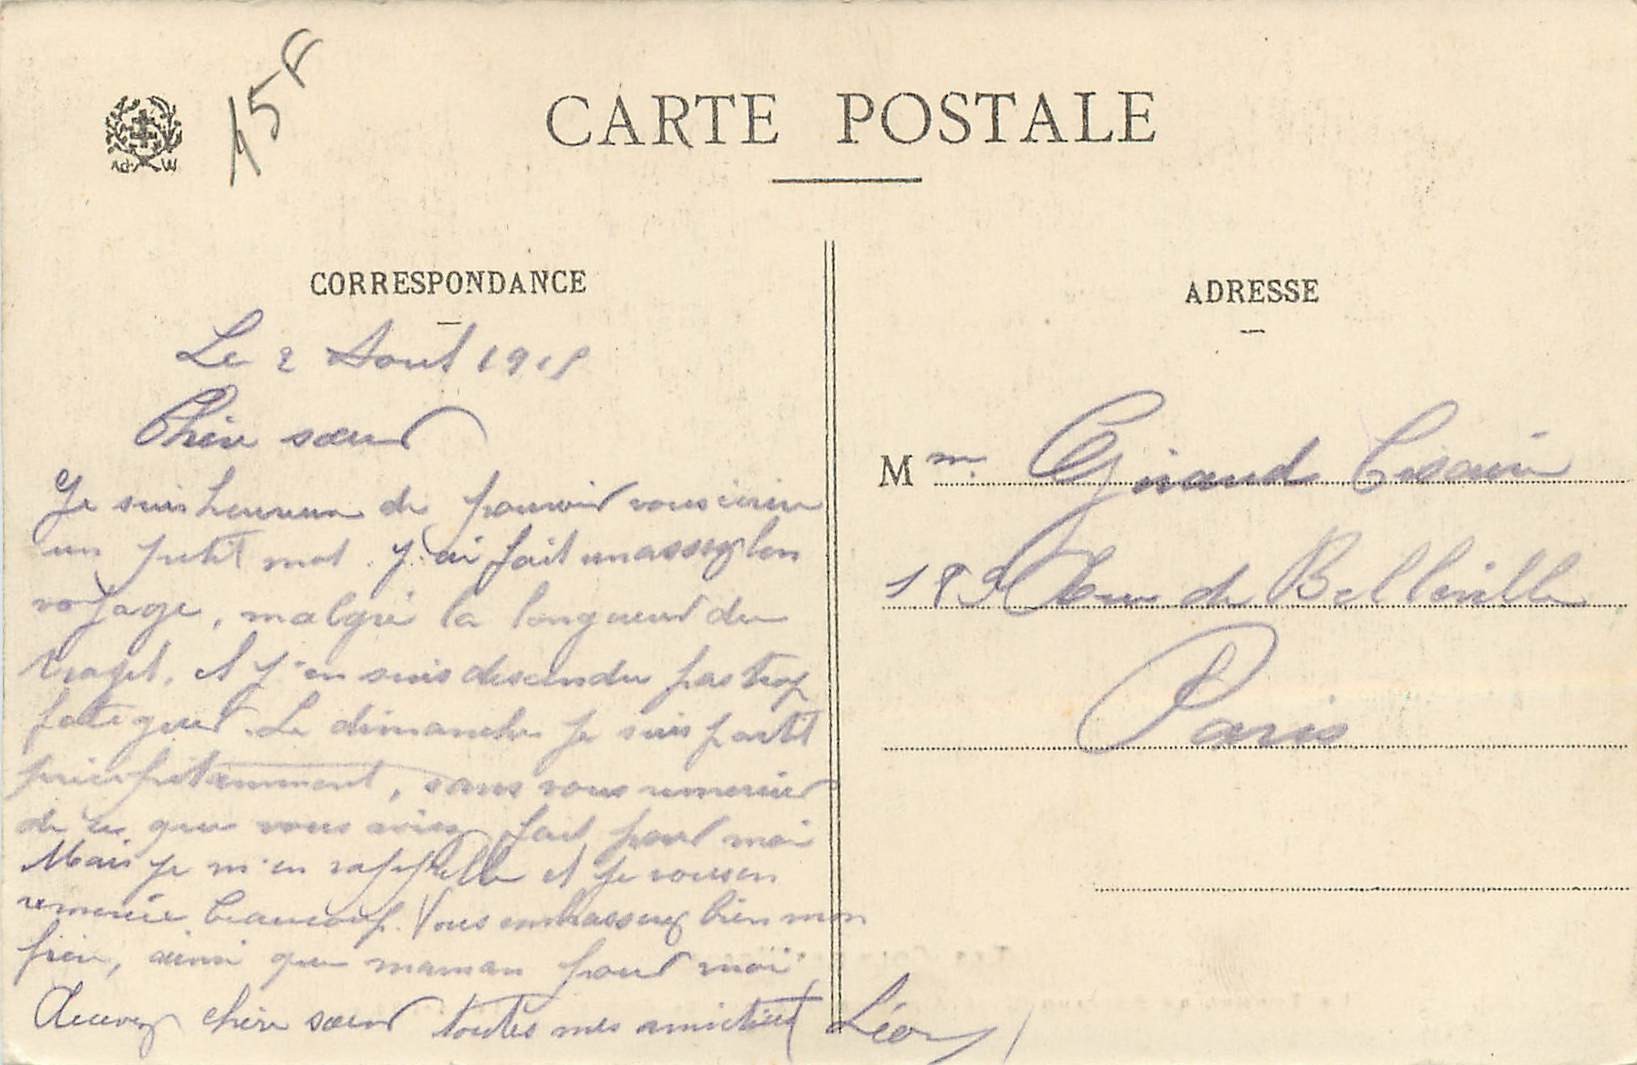 15F
Ad. W
CARTE POSTALE
CORRESPONDANCE
Le 2 Aout 1915
Chère sœur
Je suis heureux de pouvoir vous écrire
un petit mot. J'ai fait un assez bon
voyage, malgré la longueur du
trajet, et j'en suis descendu pas trop
fatiguer. Le dimanche je suis partit
précipitamment, sans vous remercier
de ce que vous aviez fait pour moi
Mais je m'en rappelle et je vous en
remercie beaucoup. Vous embasserez bien mon
frère, ainsi que maman pour moi
Recevez chère sœur toutes mes amictiées
Léon
ADRESSE
Mme Giraud Césaire
189 Rue de Belleville
Paris